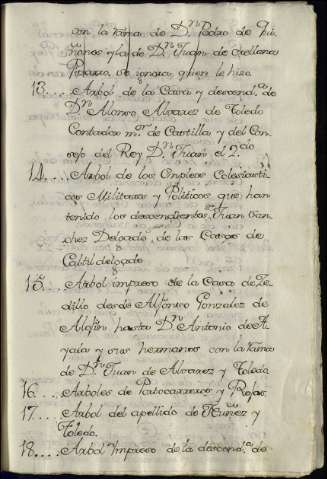 con la rama de D.n Pedro de Qui
ñones y la de D.n Juan de Orellana
Pizarro, se ignora quien le hizo
13.... Arbol de la Casa y descend.as de
D.n Alonso Alvarez de Toledo
Contador m.or de Castilla y del Con
sejo del Rey D.n Juan el 2.do
14.... Arbol de los Empleos Eclesiasti
cos Militares y Politicos que han
tenido los descendientes Juan San
chez Delgado, de las Casas de
Castildelgado
15.... Arbol impreso de la Casa de Ze
dillo desde Alfonso Gonzalez de
hasta D.n Antonio de A
yala y sus hermanos con la rama
de D.n Juan de Alvarez y Toledo
16.... Arboles de Portocarreros y Rojas.
17.... Arbol del apellido de Nuñez y
Toledo.
18.... Arbol Impreso de la descend.a de